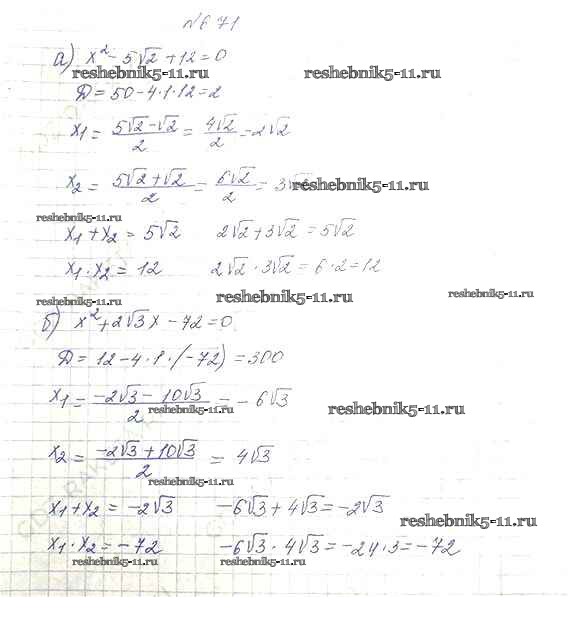 №671
а) x² - 5√2 + 12 = 0
reshebnik5-11.ru
Д = 50 - 4·1·12 = 2
x₁ = (5√2 - √2)/2 = 4√2/2 = 2√2
x₂ = (5√2 + √2)/2 = 6√2/2 = 3√2
reshebnik5-11.ru
reshebnik5-11.ru
x₁ + x₂ = 5√2 2√2 + 3√2 = 5√2
x₁ · x₂ = 12 2√2 · 3√2 = 6·2 = 12
reshebnik5-11.ru reshebnik5-11.ru reshebnik5-11.ru
б) x² + 2√3x - 72 = 0
Д = 12 - 4·1·(-72) = 300
x₁ = (-2√3 - 10√3)/2 = -6√3
reshebnik5-11.ru reshebnik5-11.ru
x₂ = (-2√3 + 10√3)/2 = 4√3
reshebnik5-11.ru
x₁ + x₂ = -2√3 -6√3 + 4√3 = -2√3
reshebnik5-11.ru
x₁ · x₂ = -72 -6√3 · 4√3 = -24·3 = -72
reshebnik5-11.ru reshebnik5-11.ru